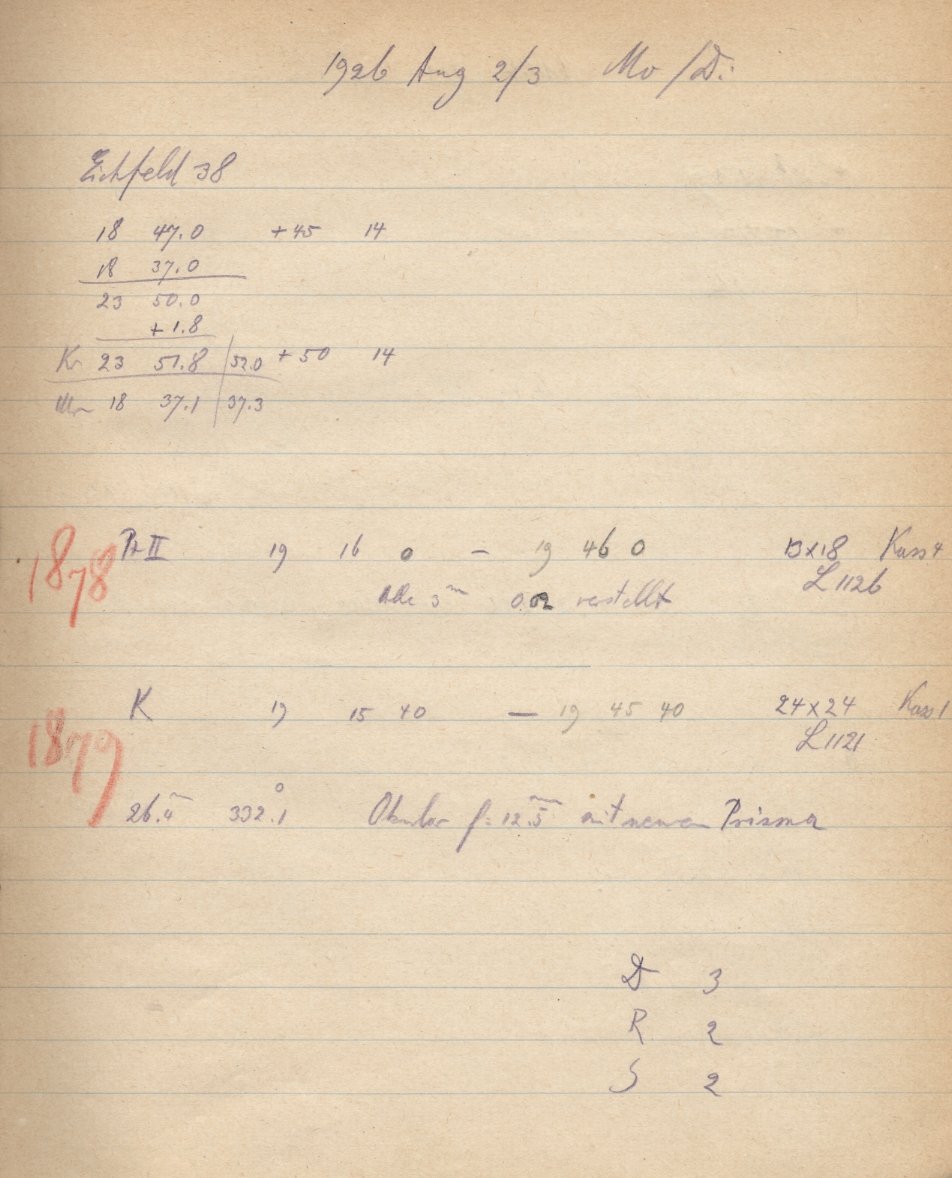 1926 Aug 2/3 Mo/Di.
Eichfeld 38
18 47.0 +45 14
18 37.0
23 50.0
+1.8
Kr 23 51.8 52.0 +50 14
18 37.1 37.3
1878 Pr II 19 16 0 – 19 46 0 13x18 Kass 4
L 1126
Alle 3m verstellt
1879 K 19 15 40 – 19 45 40 24x24 Kass 1
L 1121
26.4 332.°1 Okular f = 12.5 mit neuem Prisma
D 3
R 2
S 2